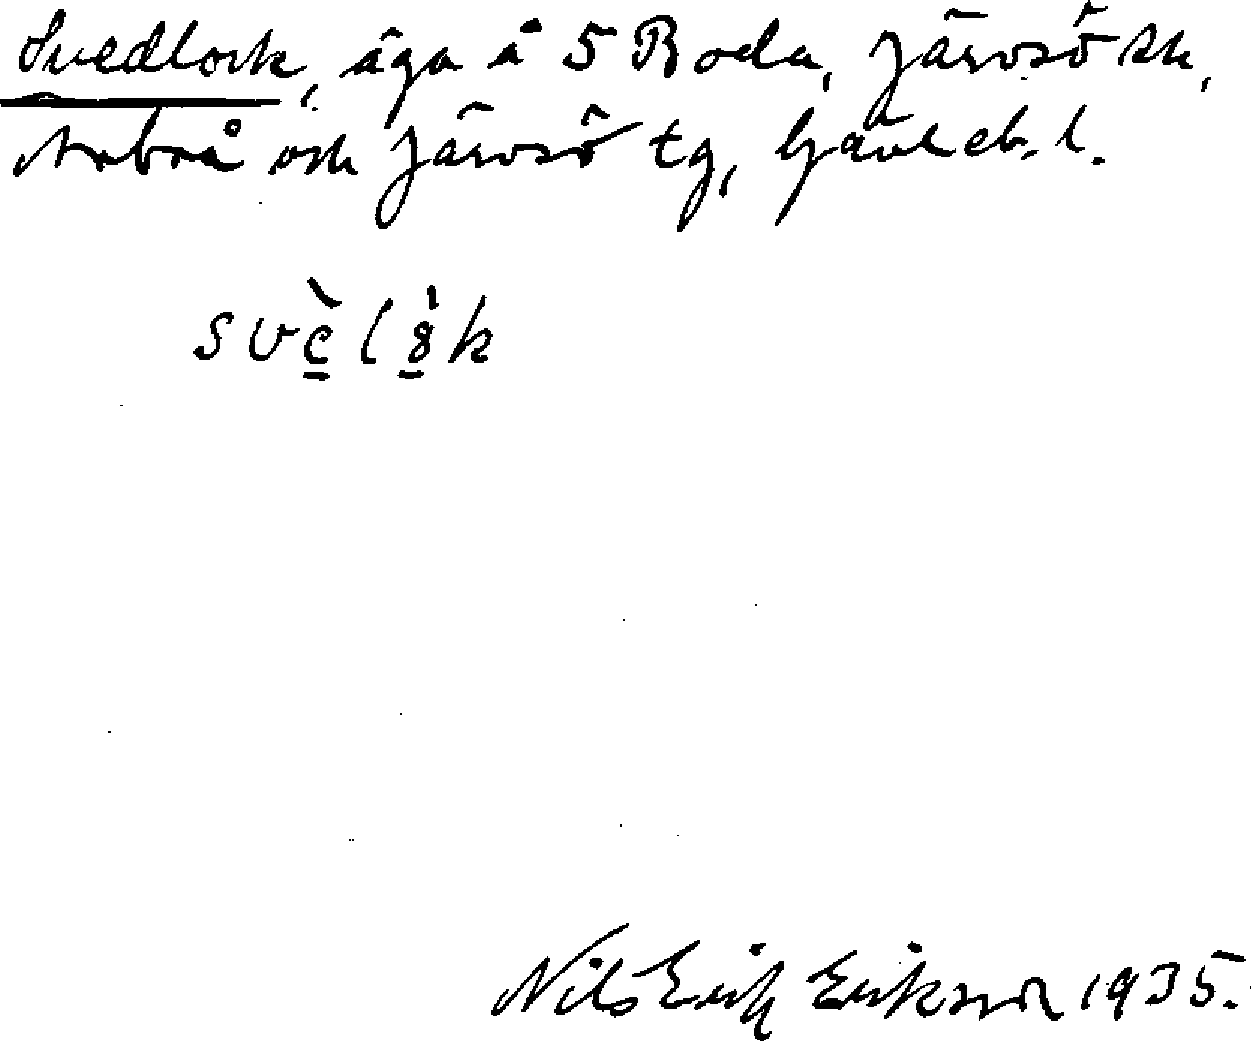 Svedlock, äga å 5 Boda, Järvsö sn,
Arbrå och Järvsö tg, Gävleb. l.
svèl8k
Nils Erik Erikson 1935.